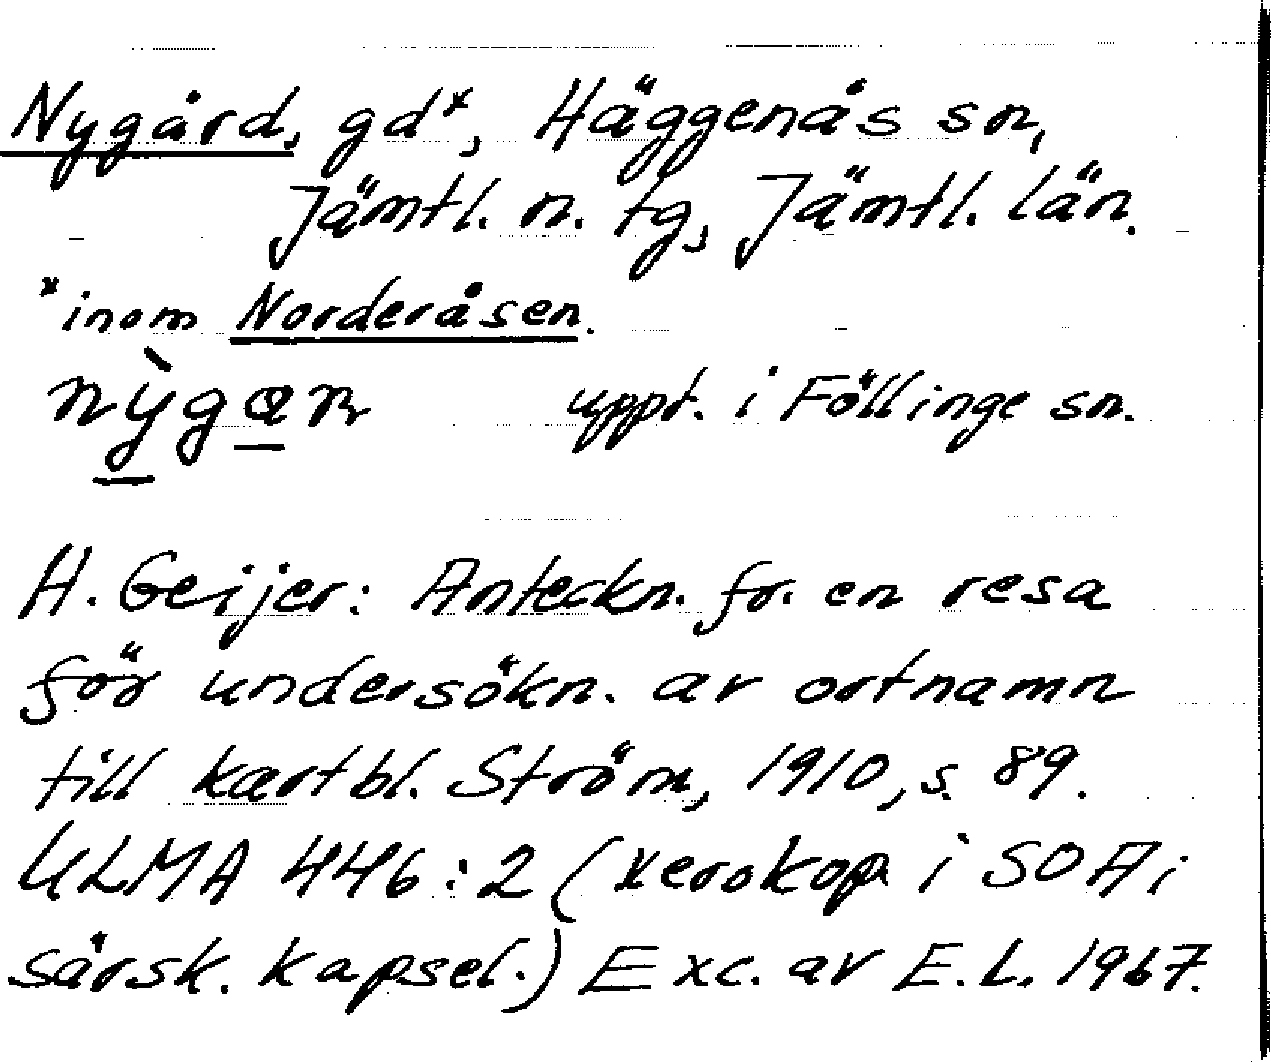 Nygård, gd*, Häggenås sn,
Jämtl. n. tg, Jämtl. län.
*inom Norderåsen.
uppt. i Föllinge sn.
H. Geijer: Anteckn. fr. en resa
för undersökn. av ortnamn
till kartbl. Ström, 1910, s. 89.
ULMA 446:2 (xerokop. i SOA i
särsk. kapsel.) Exc. av E.L. 1967.